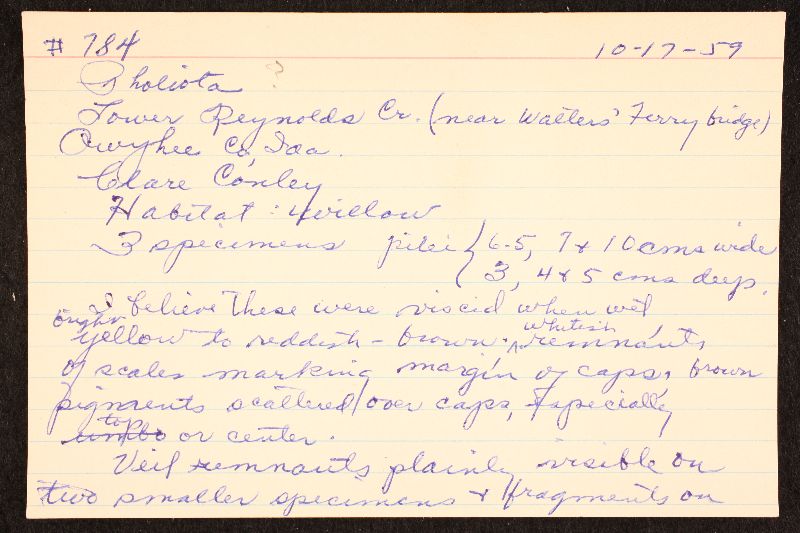 # 784 10-17-59
Pholiota ?
Lower Reynolds Cr. (near Walters' Ferry bridge)
Owyhee Co, Ida.
Clare Conley
Habitat: willow
3 specimens pilei { 6-5, 7 & 10 cms wide
3, 4 & 5 cms deep.
I believe these were viscid when wet,
yellow to reddish-brown; whitish remnants
of scales marking margin of caps, brown
pigments scattered over caps, especially
umbo top or center.
Veil remnants plainly visible on
two smaller specimens & fragments on